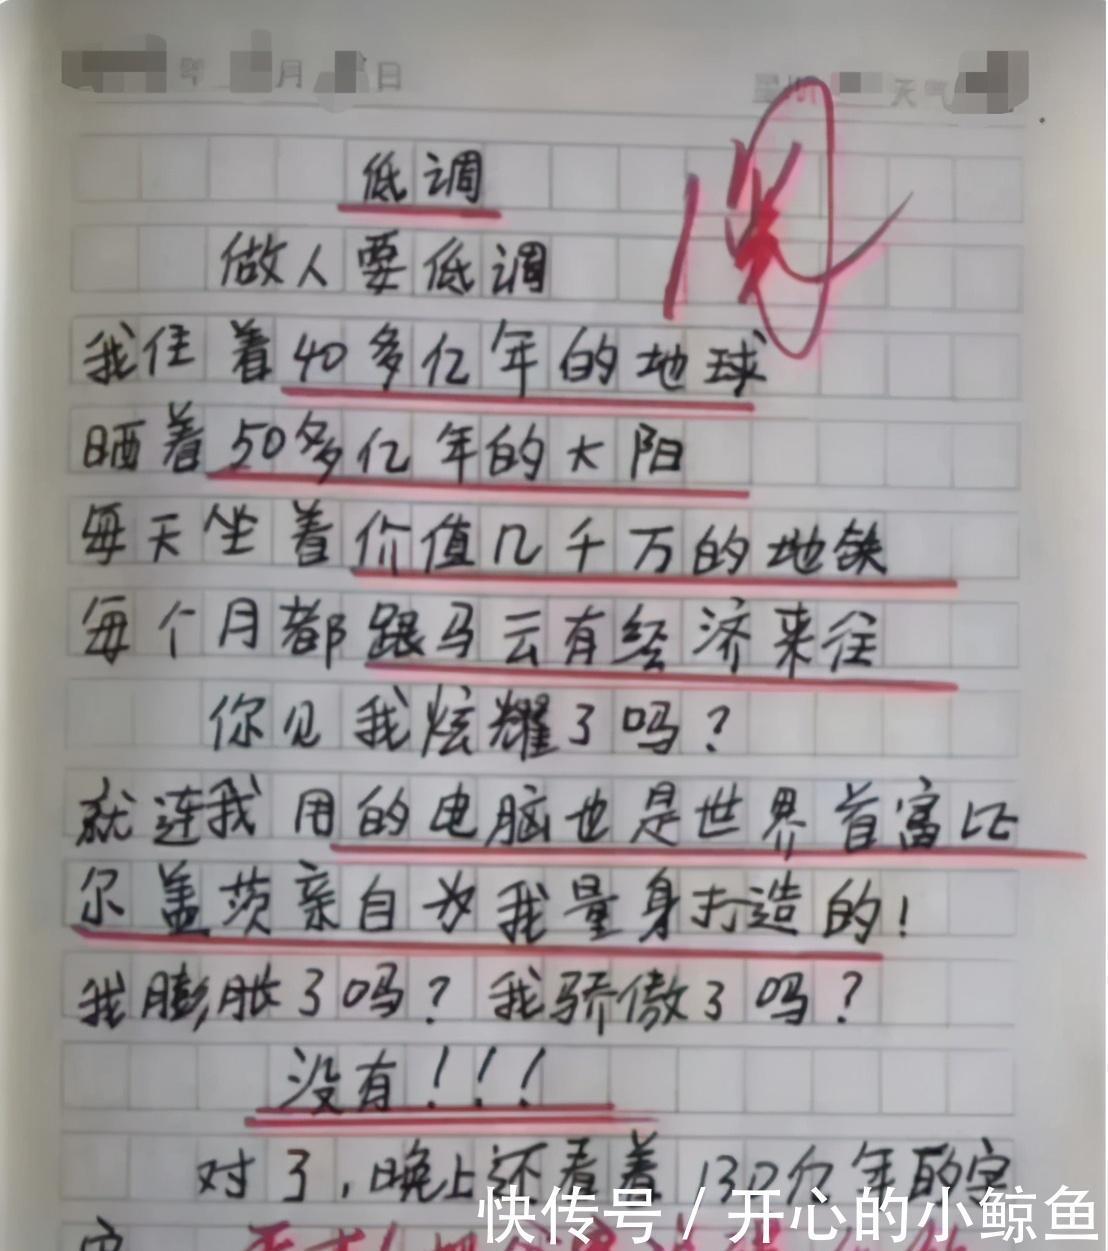 年 月 日 星期 天气
低调
做人要低调
我住着40多亿年的地球
晒着50多亿年的太阳
每天坐着价值几千万的地铁
每个月都跟马云有经济来往
你见我炫耀了吗？
就连我用的电脑也是世界首富比
尔盖茨亲自为我量身打造的！
我膨胀了吗？我骄傲了吗？
没有！！！
对了，晚上还看着130亿年的宇
宙
快传号 / 开心的小鲸鱼